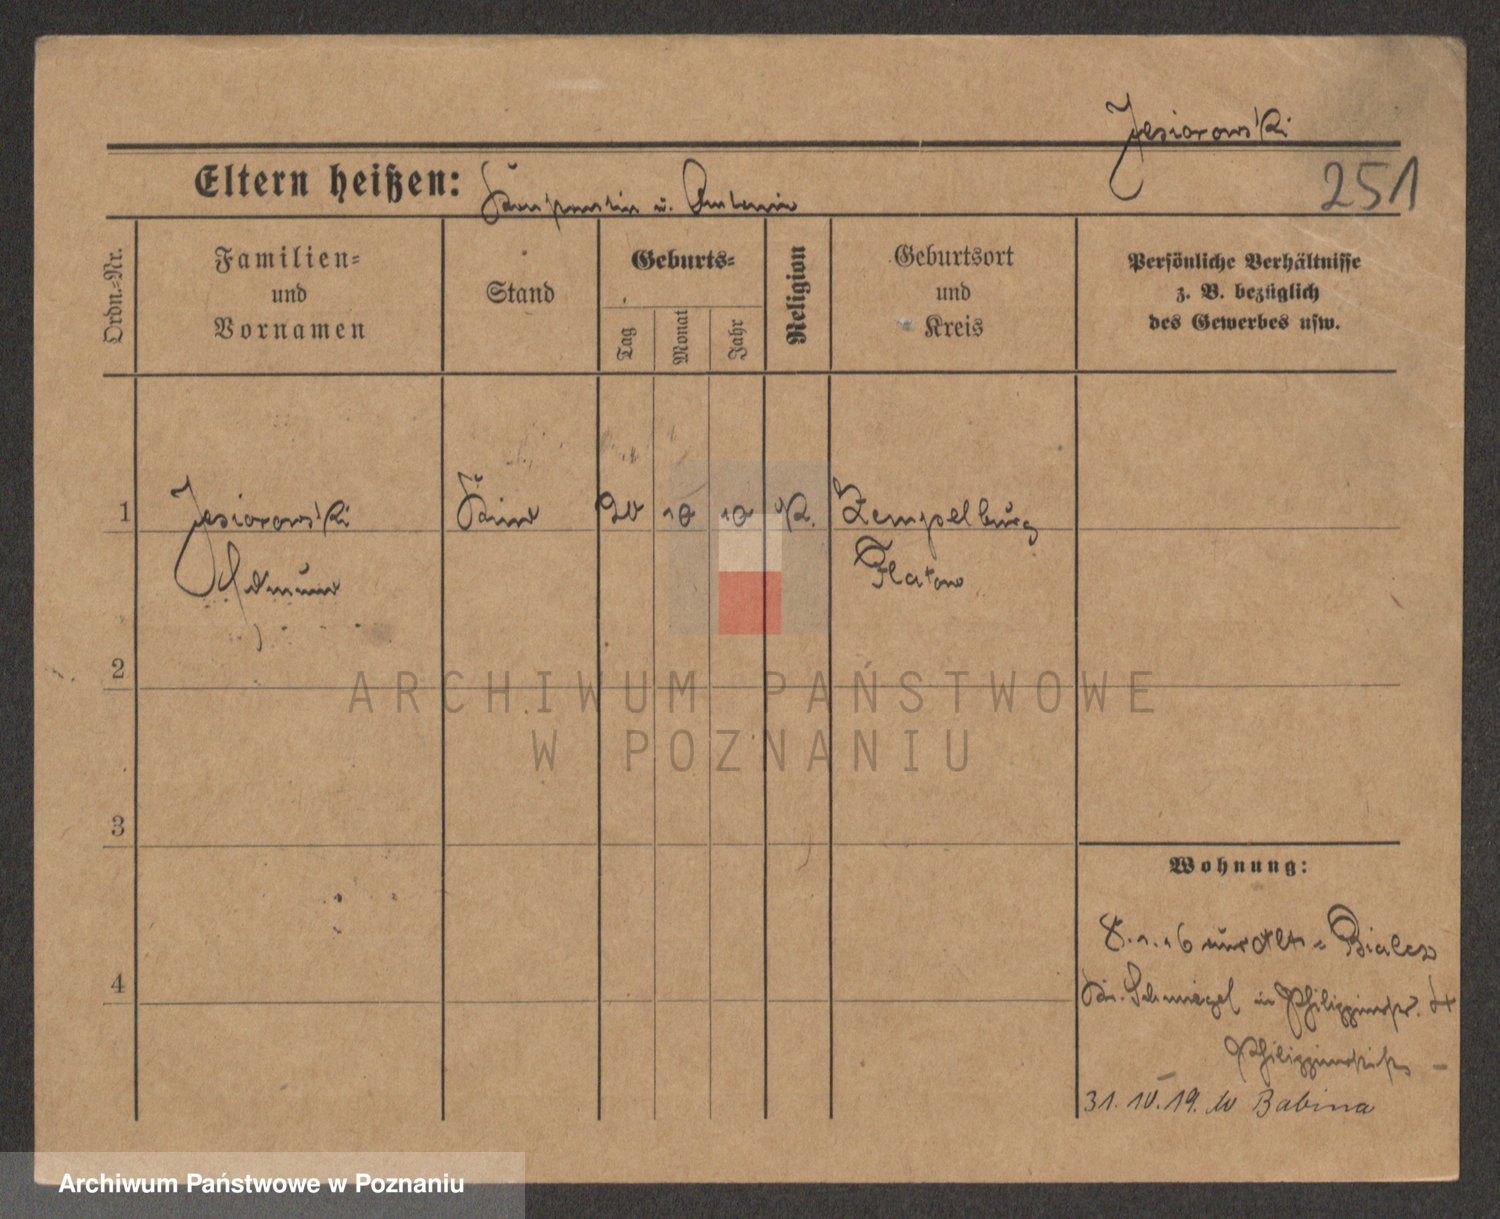 Jesiorowski
Eltern heißen: Konstantin u. Antonie
251
Ordn.-Nr.
Familien- und Vornamen
Stand
Geburts-
Tag
Monat
Jahr
Religion
Geburtsort und Kreis
Persönliche Verhältnisse
z. B. bezüglich
des Gewerbes usw.
1 Jesiorowski Kind 20 10 10 K. Zempelburg
Edmund Flatow
2
ARCHIWUM PAŃSTWOWE
W POZNANIU
3
Wohnung:
8.1.16 aus Alt-Bialcz
Kr. Schmiegel in Philippinstr. 4
Philippinstift
4
31.10.19. Babina
Archiwum Państwowe w Poznaniu